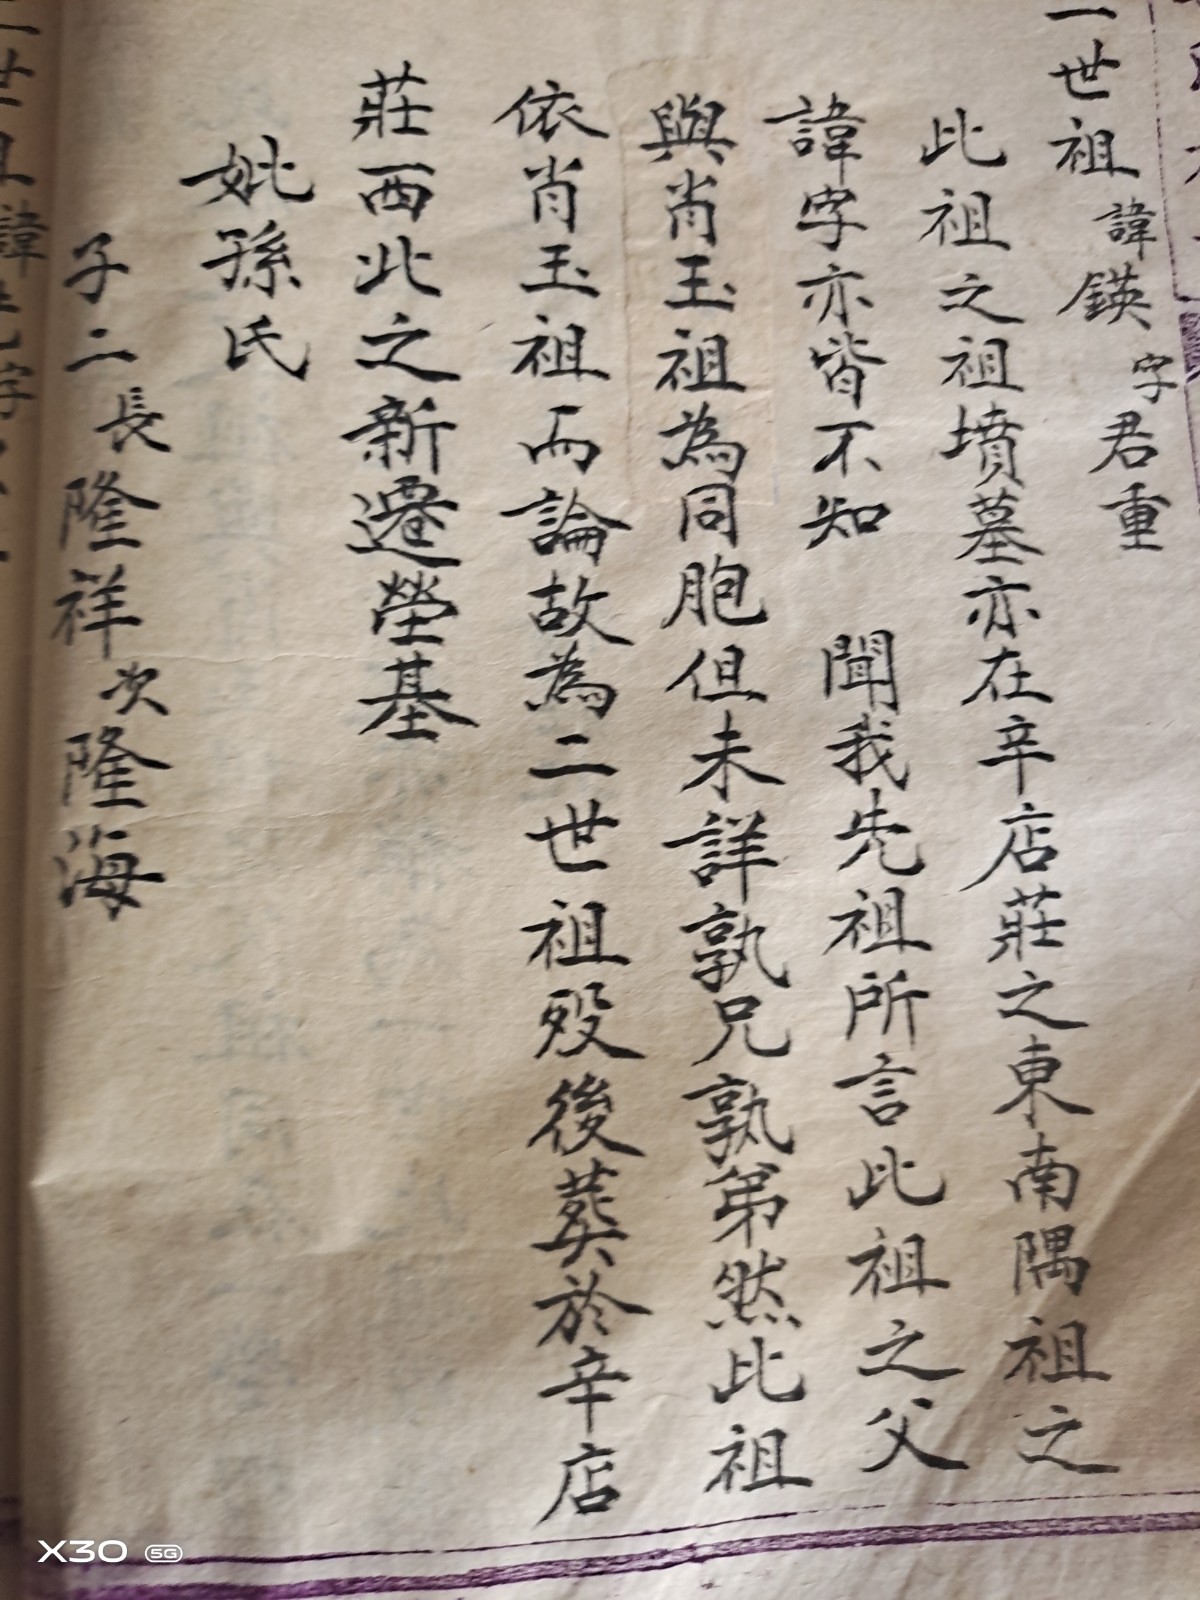 一世祖諱鍈字君重
此祖之祖墳墓亦在辛店莊之東南隅祖之
諱字亦皆不知　聞我先祖所言此祖之父
與肖玉祖為同胞但未詳孰兄孰弟然此祖
依肖玉祖而論故為二世祖歿後葬於辛店
莊西北之新遷塋基
妣孫氏
子二長隆祥次隆海
X30 5G